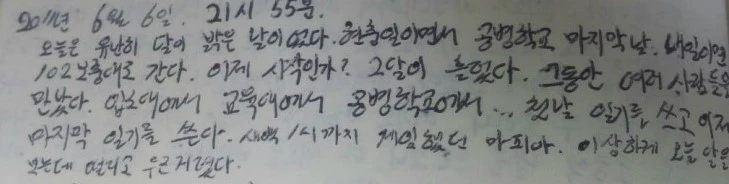 2011년 6월 6일. 21시 55분.
오늘은 유난히 달이 밝은 날이었다. 현충일이면서 공병학교 마지막 날. 내일이면
102보충대로 간다. 이제 시작인가? 그동안 여러 사람들을
만났다. 입소대에서 교육대에서 공병학교에서... 첫날 일기를 쓰고 이제
마지막 일기를 쓴다. 새벽 1시까지 게임했던 마피아. 이상하게 오늘 달을
보는데